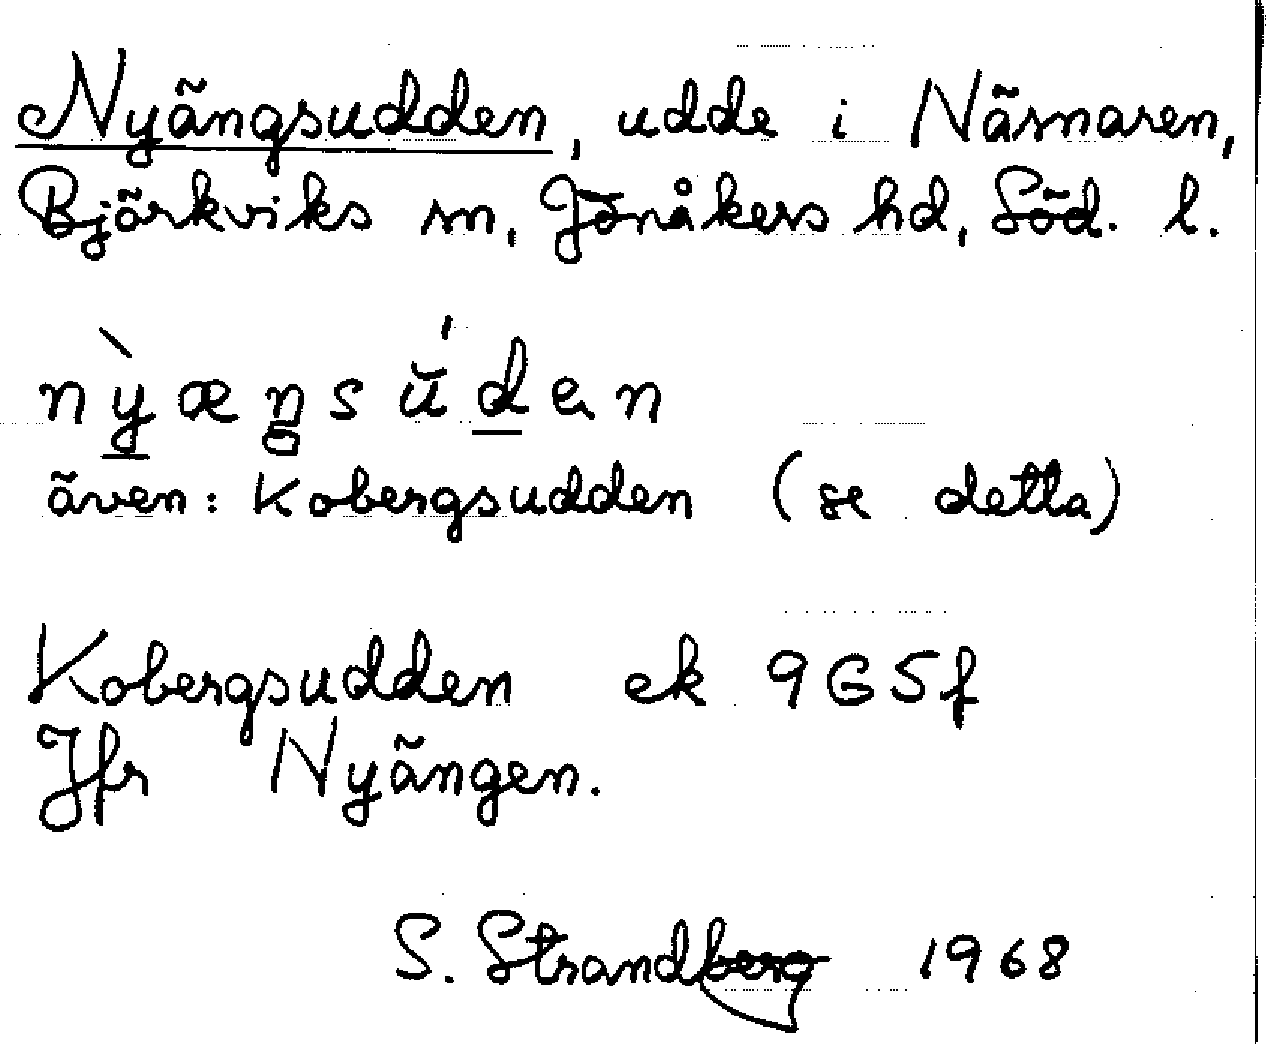 Nyängsudden, udde i Näsnaren,
Björkviks sn, Jönåkers hd, Söd. l.
nỳæŋsúden
även: Kobergsudden (se detta)
Kobergsudden ek 9G5f
Jfr Nyängen.
S. Strandberg 1968